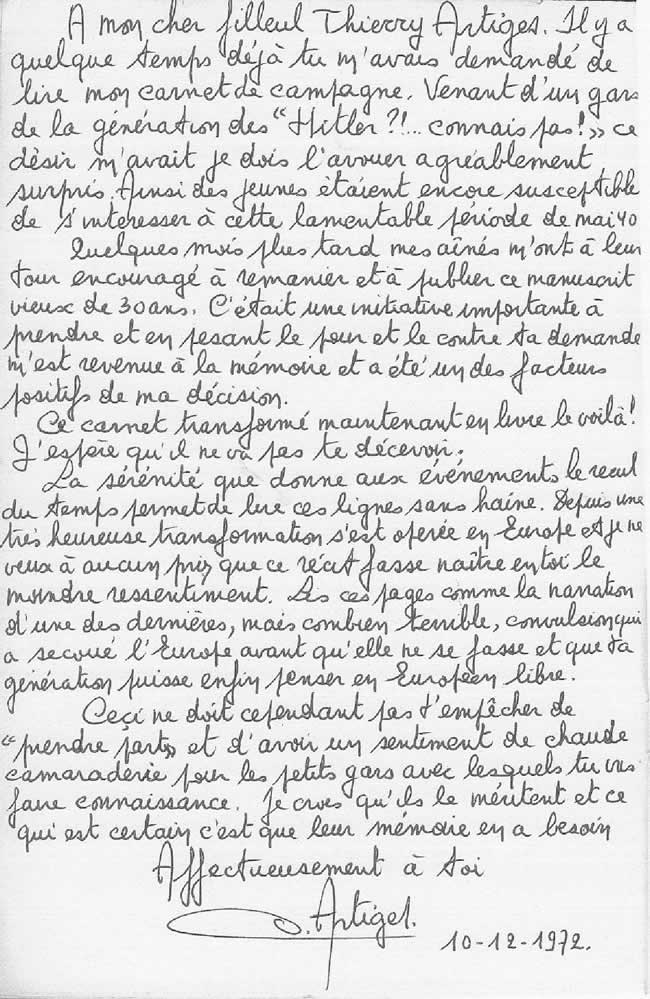 A mon cher filleul Thierry Artiges. Il y a
quelque temps déjà tu m'avais demandé de
lire mon carnet de campagne. Venant d'un gars
de la génération des "Hitler ?!... connais pas!" ce
désir m'avait je dois l'avouer agréablement
surpris. Ainsi des jeunes étaient encore susceptible
de s'intéresser à cette lamentable période de mai 40
Quelques mois plus tard mes aînés m'ont à leur
tour encouragé à remanier et à publier ce manuscrit
vieux de 30 ans. C'était une initiative importante à
prendre et en pesant le pour et le contre ta demande
m'est revenue à la mémoire et a été un des facteurs
positifs de ma décision.
Ce carnet transformé maintenant en livre le voilà!
J'espère qu'il ne va pas te décevoir.
La sérénité que donne aux événements le recul
du temps permet de lire ces lignes sans haine. Depuis une
très heureuse transformation s'est opérée en Europe et je ne
veux à aucun prix que ce récit fasse naître en toi le
moindre ressentiment. Lis ces pages comme la narration
d'une des dernières, mais combien terrible, convulsion qui
a secoué l'Europe avant qu'elle ne se fasse et que ta
génération puisse enfin penser en Européen libre.
Ceçi ne doit cependant pas t'empêcher de
"prendre part" et d'avoir un sentiment de chaude
camaraderie pour les petits gars avec lesquels tu vas
faire connaissance. Je crois qu'ils le méritent et ce
qui est certain c'est que leur mémoire en a besoin
Affectueusement à toi
O. Artiges.
10-12-1972.